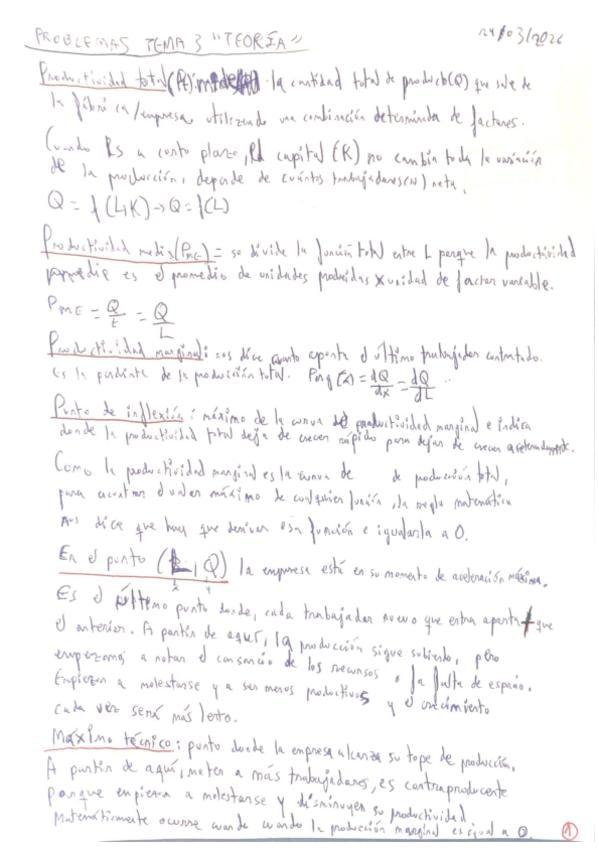 PROBLEMAS TEMA 3 "TEORÍA" 24/03/2026
Productividad total (Pt): la cantidad total de producto (Q) que sale de
la fábrica/empresa utilizando una combinación determinada de factores.
Cuando Es a corto plazo, el capital (K) no cambia toda la variación
de la producción, depende de cuántos trabajadores(N) meta.
Q = f(L,K) → Q = f(L)
Productividad media(PME) = se divide la función total entre L porque la productividad
es el promedio de unidades producidas x unidad de factor variable.
PME = Q/t = Q/L
Productividad marginal: nos dice cuanto aporta el último trabajador contratado.
Es la pendiente de la producción total. Pmg (x) = dQ/dx = dQ/dL
Punto de inflexión: máximo de la curva de productividad marginal e indica
donde la productividad total deja de crecer rápido para dejar de crecer
Como la productividad marginal es la curva de de producción total,
para encontrar el valor máximo de cualquier función, la regla matemática
nos dice que hay que derivar esa función e igualarla a 0.
En el punto (L, Q) la empresa está en su momento de aceleración máxima.
Es el último punto donde, cada trabajador nuevo que entra aporta + que
el anterior. A partir de aquí, la producción sigue subiendo, pero
empezamos a notar el cansancio de los recursos o la falta de espacio.
Empiezan a molestarse y a ser menos productivos y el crecimiento
cada vez será más lento.
Máximo técnico: punto donde la empresa alcanza su tope de producción.
A partir de aquí, meter a más trabajadores, es contraproducente
porque empiezan a molestarse y disminuyen su productividad.
Matemáticamente ocurre cuando cuando la producción marginal es igual a 0.
1